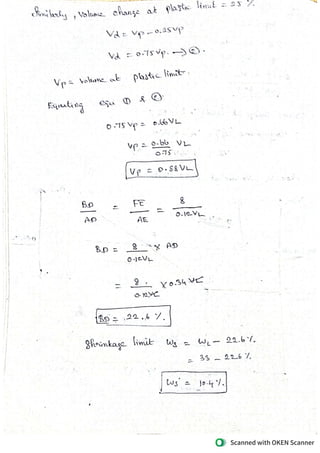 Similarly, volume change at plastic limit = 25 %
Vd = Vp - 0.25Vp
Vd = 0.75 Vp. → ②.
Vp = volume at plastic limit.
Equating equ ① & ②
0.75 Vp = 0.66 VL
Vp = 0.66 / 0.75 VL
Vp = 0.88 VL
BD / AD = FE / AE = 8 / 0.12VL
BD = 8 / 0.12VL × AD
= 8. / 0.12VL × 0.34 VL
BD = 22.6 %.
Shrinkage limit Ws = WL - 22.6 %
= 33 - 22.6 %
Ws = 10.4 %.
Scanned with OKEN Scanner